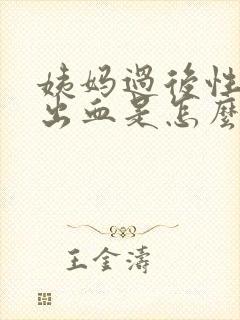 姨妈过後性
出血是怎麼
王金濤